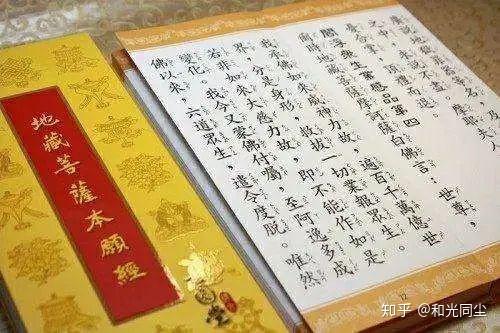 地藏菩薩本願經
合掌,頂禮而退。
閻浮眾生業感品第四
爾時地藏菩薩摩訶薩白佛言:世尊,
我承佛如來威神力故,遍百千萬億世
界,分是身形,救拔一切業報眾生。
若非如來大慈力故,即不能作如是
變化。我今又蒙佛付囑,至阿逸多成
佛以來,六道眾生,遣令度脫。唯然
知乎 @和光同尘